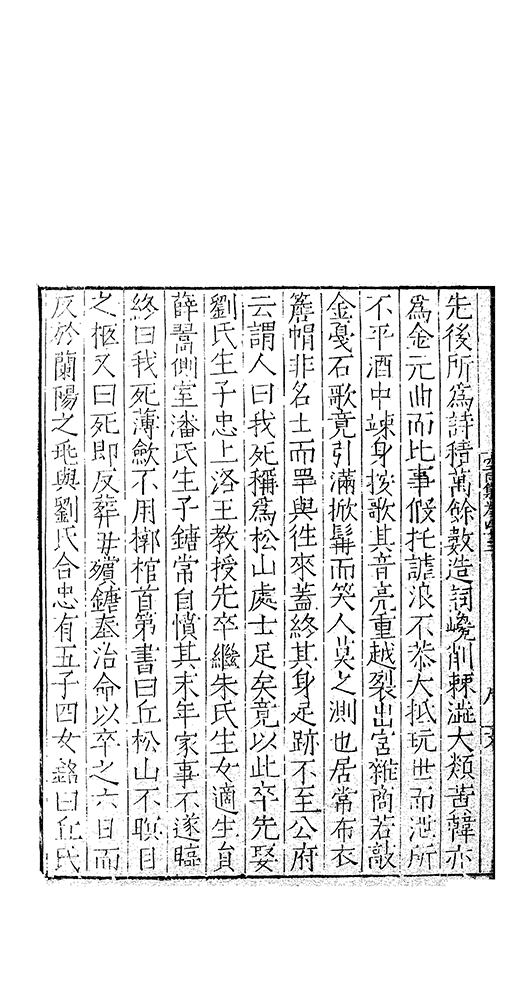 先後所爲詩積萬餘數造詞巉削棘澁大類黃韓亦
爲金元曲而比事假托謔浪不恭大抵玩世而泄所
不平酒中竦身投歌其音亮重越裂出宮雜商若敲
金戞石歌竟引滿掀髯而笑人莫之測也居常布衣
詹帽非名士而罕與徃來蓋終其身足跡不至公府
云謂人曰我死稱爲松山處士足矣竟以此卒先娶
劉氏生子忠上洛王教授先卒繼朱氏生女適生員
薛暠側室潘氏生子鏞常自憤其末年家事不遂臨
終曰我死薄斂不用槨棺首第書曰丘松山不瞑目
之柩又曰死即反葬毋殯鏞奉治命以卒之六日而
反於蘭陽之兆與劉氏合忠有五子四女銘曰丘氏